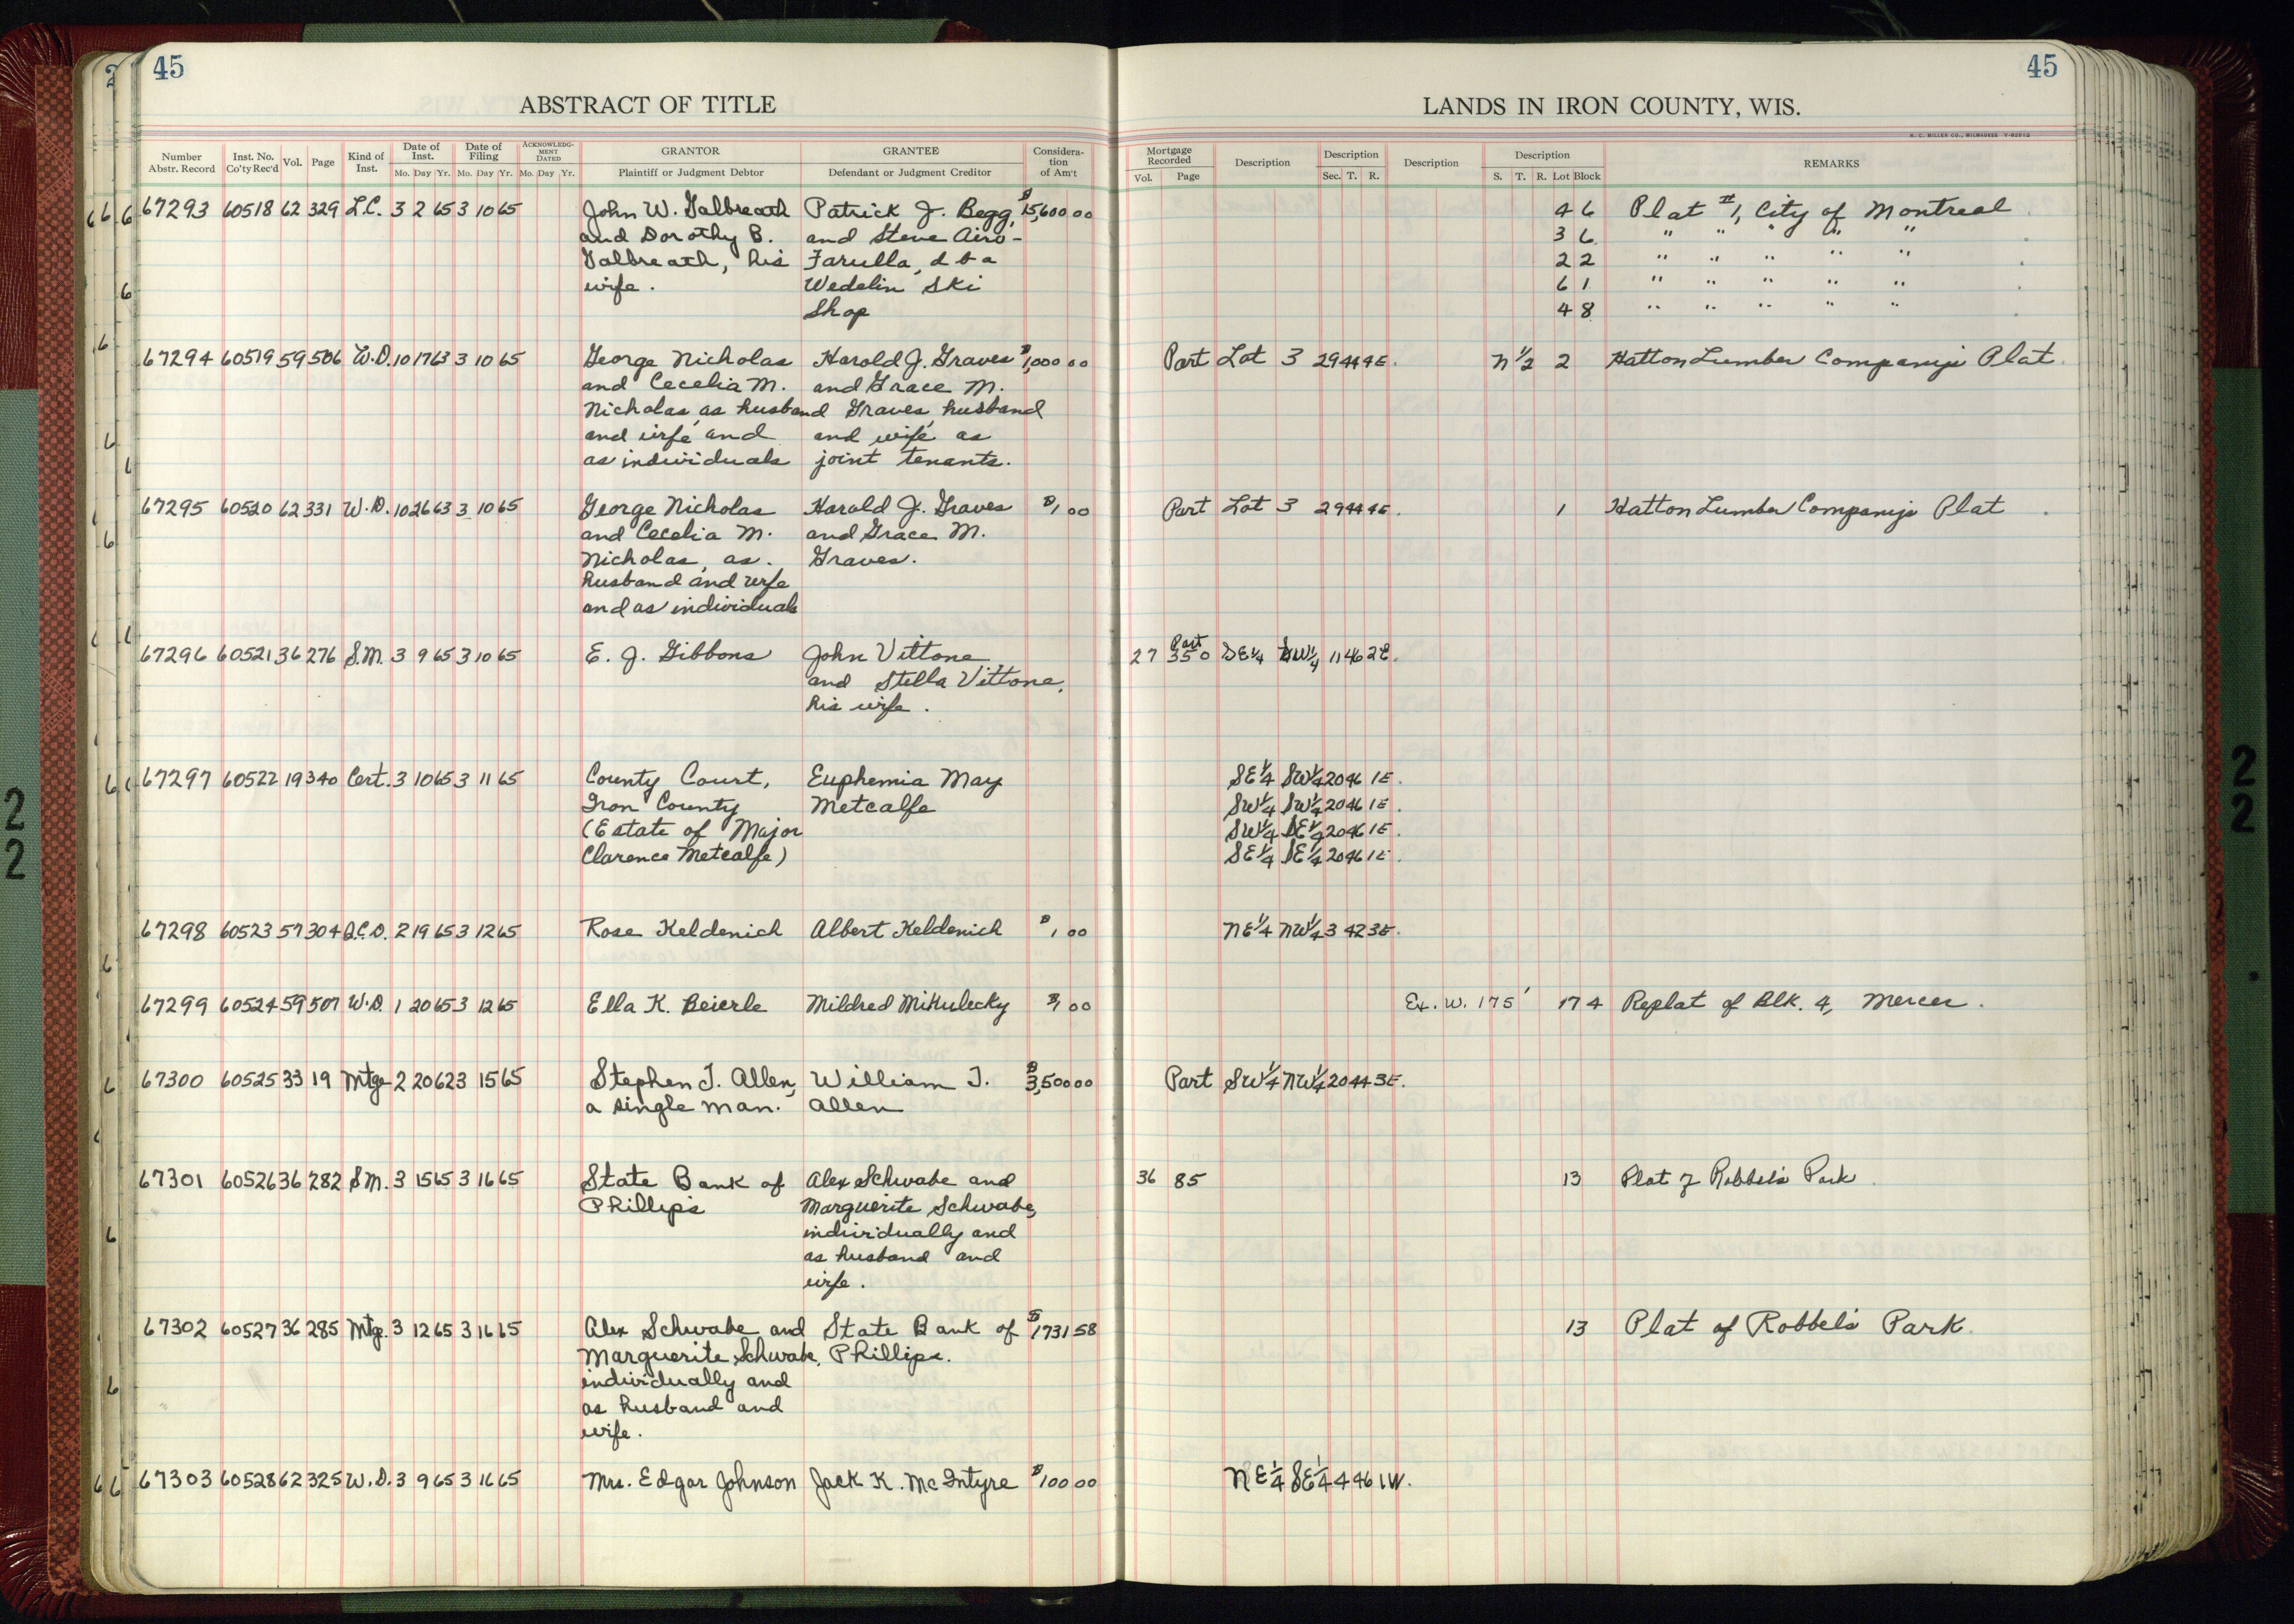 45
45
ABSTRACT OF TITLE
LANDS IN IRON COUNTY, WIS.
H. C. MILLER CO., MILWAUKEE
Number Abstr. Record Inst. No. Co'ty Rec'd Vol. Page Kind of Inst. Date of Inst. Mo. Day Yr. Date of Filing Mo. Day Yr. ACKNOWLEDG-MENT DATED Mo. Day Yr. GRANTOR Plaintiff or Judgment Debtor GRANTEE Defendant or Judgment Creditor Considera-tion of Am't
Mortgage Recorded Vol. Page Description Description Sec. T. R. Description Description S. T. R. Lot Block REMARKS
67293 60518 62 329 L.C. 3 2 65 3 10 65 John W. Galbreath Patrick J. Begg, $15,600 00 4 6 Plat #1, City of Montreal
and Dorothy B. and Steve Airo- 3 6 " " " " "
Galbreath, his Farulla, d b a 2 2 " " " " "
wife. Wedelin Ski 6 1 " " " " "
Shop 4 8 " " " " "
67294 60519 59 506 W.D. 10 17 63 3 10 65 George Nicholas Harold J. Graves $1,000 00 Part Lot 3 29 44 4E. N 1/2 2 Hatton Lumber Company's Plat
and Cecelia M. and Grace M.
Nicholas, as husband Graves husband
and wife and and wife as
as individuals joint tenants.
67295 60520 62 331 W.D. 10 26 63 3 10 65 George Nicholas Harold J. Graves $1 00 Part Lot 3 29 44 4E. 1 Hatton Lumber Company's Plat
and Cecelia M. and Grace M.
Nicholas, as Graves.
husband and wife
and as individuals
67296 60521 36 276 S.M. 3 9 65 3 10 65 E. J. Gibbons John Vittone 27 350 Part SE1/4 SW1/4 11 46 2E.
and Stella Vittone,
his wife.
67297 60522 19 340 Cert. 3 10 65 3 11 65 County Court, Euphemia May SE1/4 SW1/4 20 46 1E.
Iron County Metcalfe SW1/4 SW1/4 20 46 1E.
(Estate of Major SW1/4 SE1/4 20 46 1E.
Clarence Metcalfe) SE1/4 SE1/4 20 46 1E.
67298 60523 57 304 Q.C.D. 2 19 65 3 12 65 Rose Keldenich Albert Keldenich $1 00 NE1/4 NW1/4 3 42 3E.
67299 60524 59 507 W.D. 1 20 65 3 12 65 Ella K. Beierle Mildred Mikulecky $1 00 Ex. W. 175' 17 4 Replat of Blk. 4, Mercer.
67300 60525 33 19 Mtge 2 20 62 3 15 65 Stephen J. Allen, William J. $3,500 00 Part SW1/4 NW1/4 20 44 3E.
a single man. Allen
67301 60526 36 282 S.M. 3 15 65 3 16 65 State Bank of Alex Schwabe and 36 85 13 Plat of Robbel's Park
Phillips Marguerite Schwabe,
individually and
as husband and
wife.
67302 60527 36 285 Mtge. 3 12 65 3 16 65 Alex Schwabe and State Bank of $1731 58 13 Plat of Robbel's Park.
Marguerite Schwabe, Phillips.
individually and
as husband and
wife.
67303 60528 62 325 W.D. 3 9 65 3 16 65 Mrs. Edgar Johnson Jack K. McIntyre $100 00 NE1/4 SE1/4 4 46 1W.
22
22